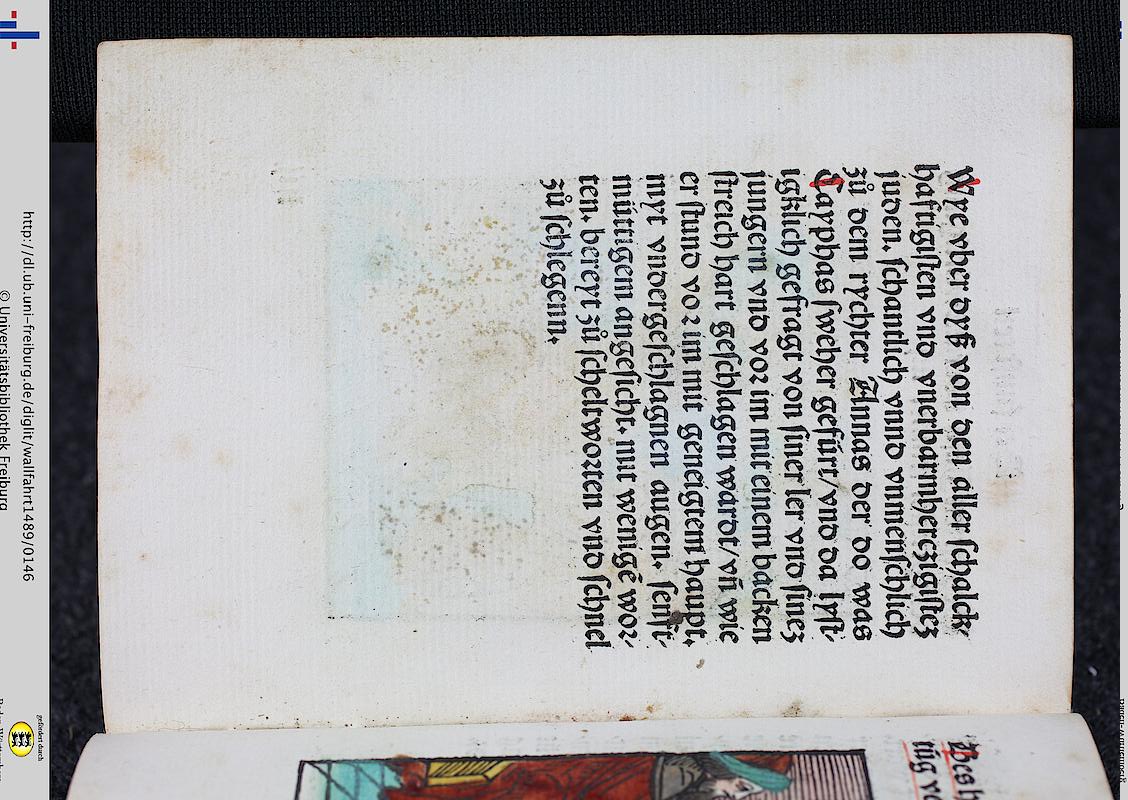 Wye vber dyß von den aller schalck-
hafftigisten vnd vnerbarmherczigistez
juden. schantlich vnnd vnmenschlich
zů dem rychter Annas der do was
Cayphas sweher gefůrt/vnd da lyst-
igklich gefragt von siner ler vnd sinez
jungern vnd vor im mit einem backen
streich hart geschlagen wardt/vn̄ wie
er stund vor im mit geneigtem haupt.
myt vndergeschlagnen augen. senft-
můttigem angesicht. mit wenigē wor-
ten. bereyt zů scheltworten vnd schnel
zů schlegenn.
http://dl.ub.uni-freiburg.de/diglit/wallfahrt1489/0146
© Universitätsbibliothek Freiburg
gefördert durch